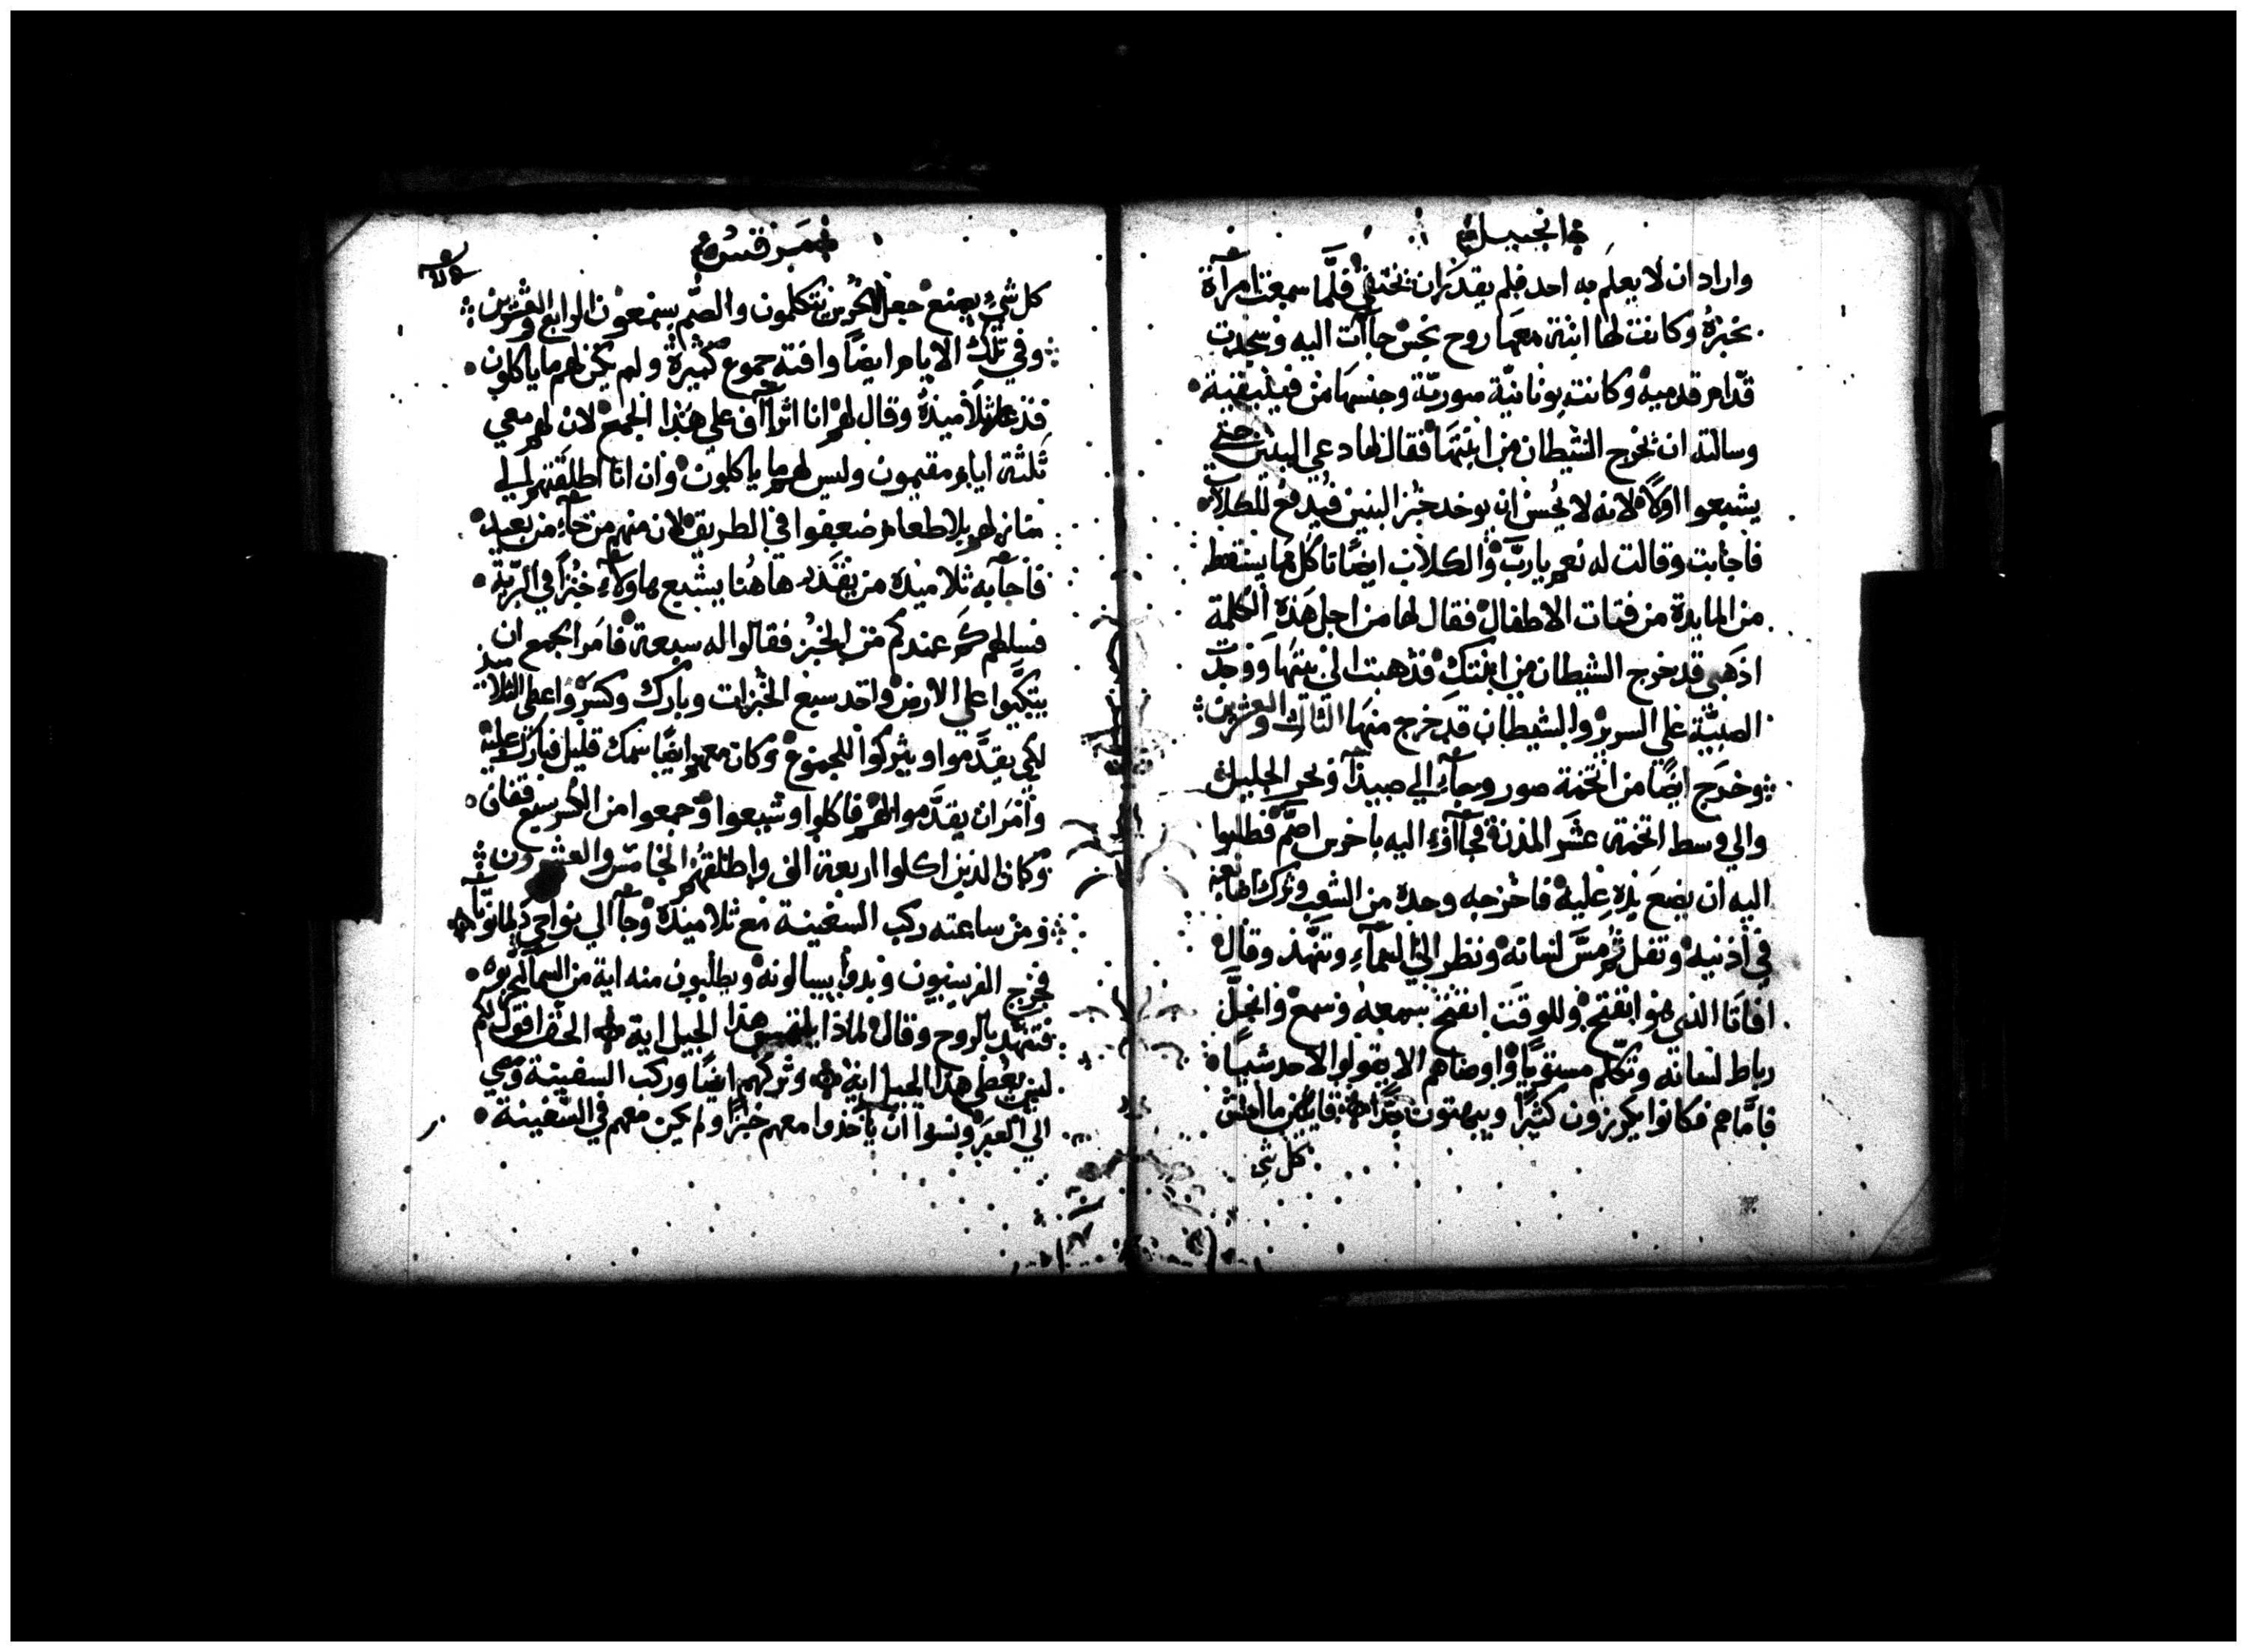 انجيل
واراد ان لا يعلم به احد فلم يقدر ان يختفي فلما سمعت امرآة
بخبره وكانت لها ابنة معها روح نجس جآات اليه وسجدت
قدام قدميه وكانت يونانية سورية وجنسها من فينيقية
وسالته ان يخرج الشيطان من ابنتها فقال لها دعي البنين حتي
يشبعوا اولاً لانه لا يحسن ان يوخد خبز البنين فيدفع للكلاب
فاجابت وقالت له نعم يا رب والكلاب ايضًا تاكل مما يسقط
من المايدة من فتات الاطفال فقال لها من اجل هذه الكلمة
اذهبي قد خرج الشيطان من ابنتك فذهبت الي بيتها ووجدت
الصبية علي السرير والشيطان قد خرج منها الثالث والعشرين
وخرج ايضًا من اتخمة صور وجآء الي صيدآ وبحر الجليل
والي وسط اتخمة عشر المدن فجآاوء اليه باخرس اصم فطلبوا
اليه ان يضع يده عليه فاخرجه وحده من الشعب وترك اصابعه
في أذنيه وتفل ثم مس لسانه ونظر الي السمآء وتنهد وقال
افاتا الذي هو انفتح وللوقت انفتح سمعه وسمع وانحل
رباط لسانه وتكلم مستويًا واوصاهم الا يقولوا لاحد شياً
فامّا هم فكانوا يكرزون كثيرًا ويبهتون جدًا قايلين ما احسن
كل شي
مرقس
كل شيء يصنع جعل الخرس يتكلمون والصم يسمعون الرابع والعشرين
وفي تلك الايام ايضًا وافته جموع كثيرة ولم يكن لهم ما ياكلون
فدعا تلاميذه وقال لهم انا اتراآف علي هذا الجمع لان لهم معي
ثلثة ايام مقيمون وليس لهم ما ياكلون وان انا اطلقتهم الي
منازلهم بلا طعام ضعفوا في الطريق لان منهم من جآء من بعيد
فاجآبه تلاميذه من يقدر هاهنا يشبع هاولآء خبزًا في البرّية
فسالهم كم عندكم من الخبز فقالوا له سبعة فامر الجمع ان
يتكيوا علي الارض واخد سبع الخبزات وبارك وكسر واعطي التلاميذ
لكي يقدموا ويتركوا للجموع وكان معهم ايضًا سمك قليل فبارك عليه
وامر ان يقدموا لهم فاكلوا وشبعوا وجمعوا من الكسر سبع قفاف
وكان الذين اكلوا اربعة الف واطلقهم الخامس والعشرون
ومن ساعته ركب السفينة مع تلاميذه وجآ الي نواحي دلمانوتآ
فخرج الفريسيون وبدوا يسالونه ويطلبون منه اية من السمآ ليجربوه
فتنهد بالروح وقال لماذا يلتمس هذا الجيل اية الحق اقول لكم
ليس يعطي هذا الجيل اية وتركهم ايضًا وركب السفينة ومضي
الي العبر ونسوا ان يأخذوا معهم خبزًا ولم يكن معهم في السفينة